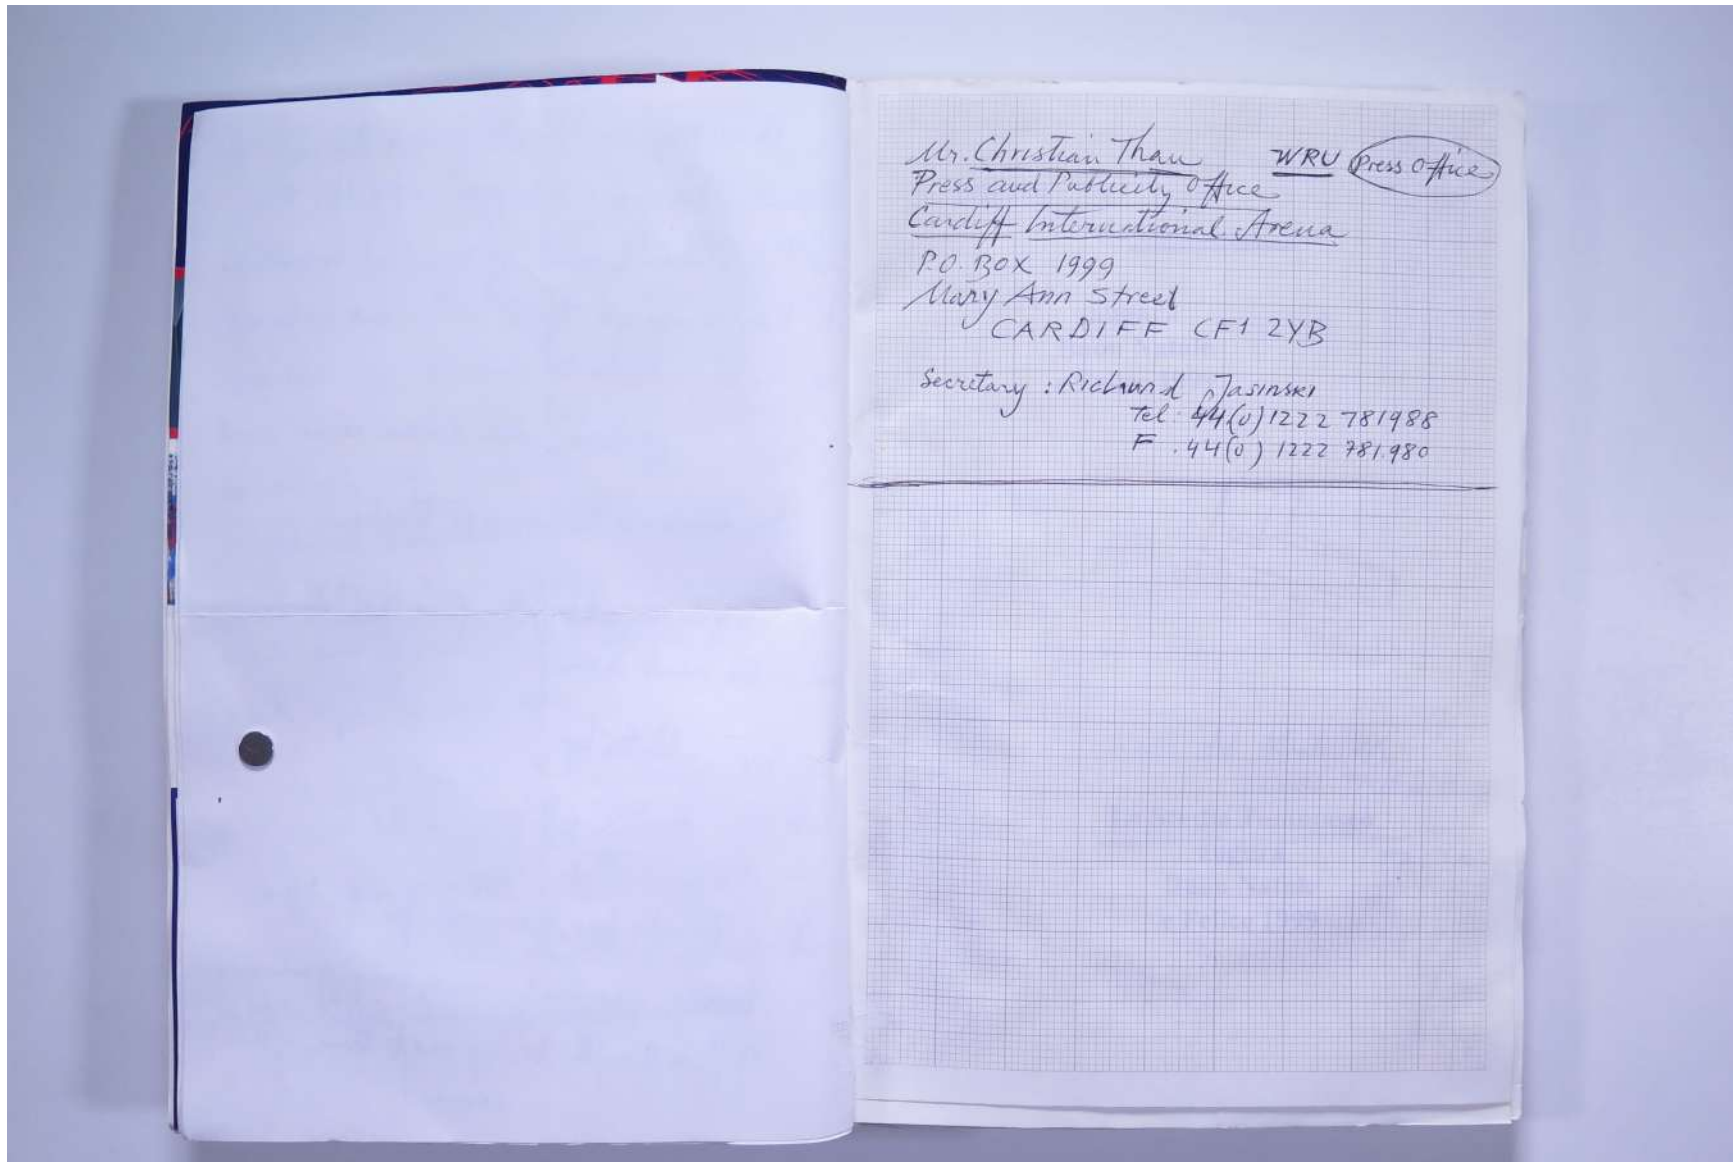 Mr. Christian Thau WRU Press Office
Press and Publicity Office
Cardiff International Arena
P.O. BOX 1999
Mary Ann Street
CARDIFF CF1 2YB
Secretary : Richard Jasinski
Tel. 44(0)1222 781988
F . 44(0) 1222 781.980